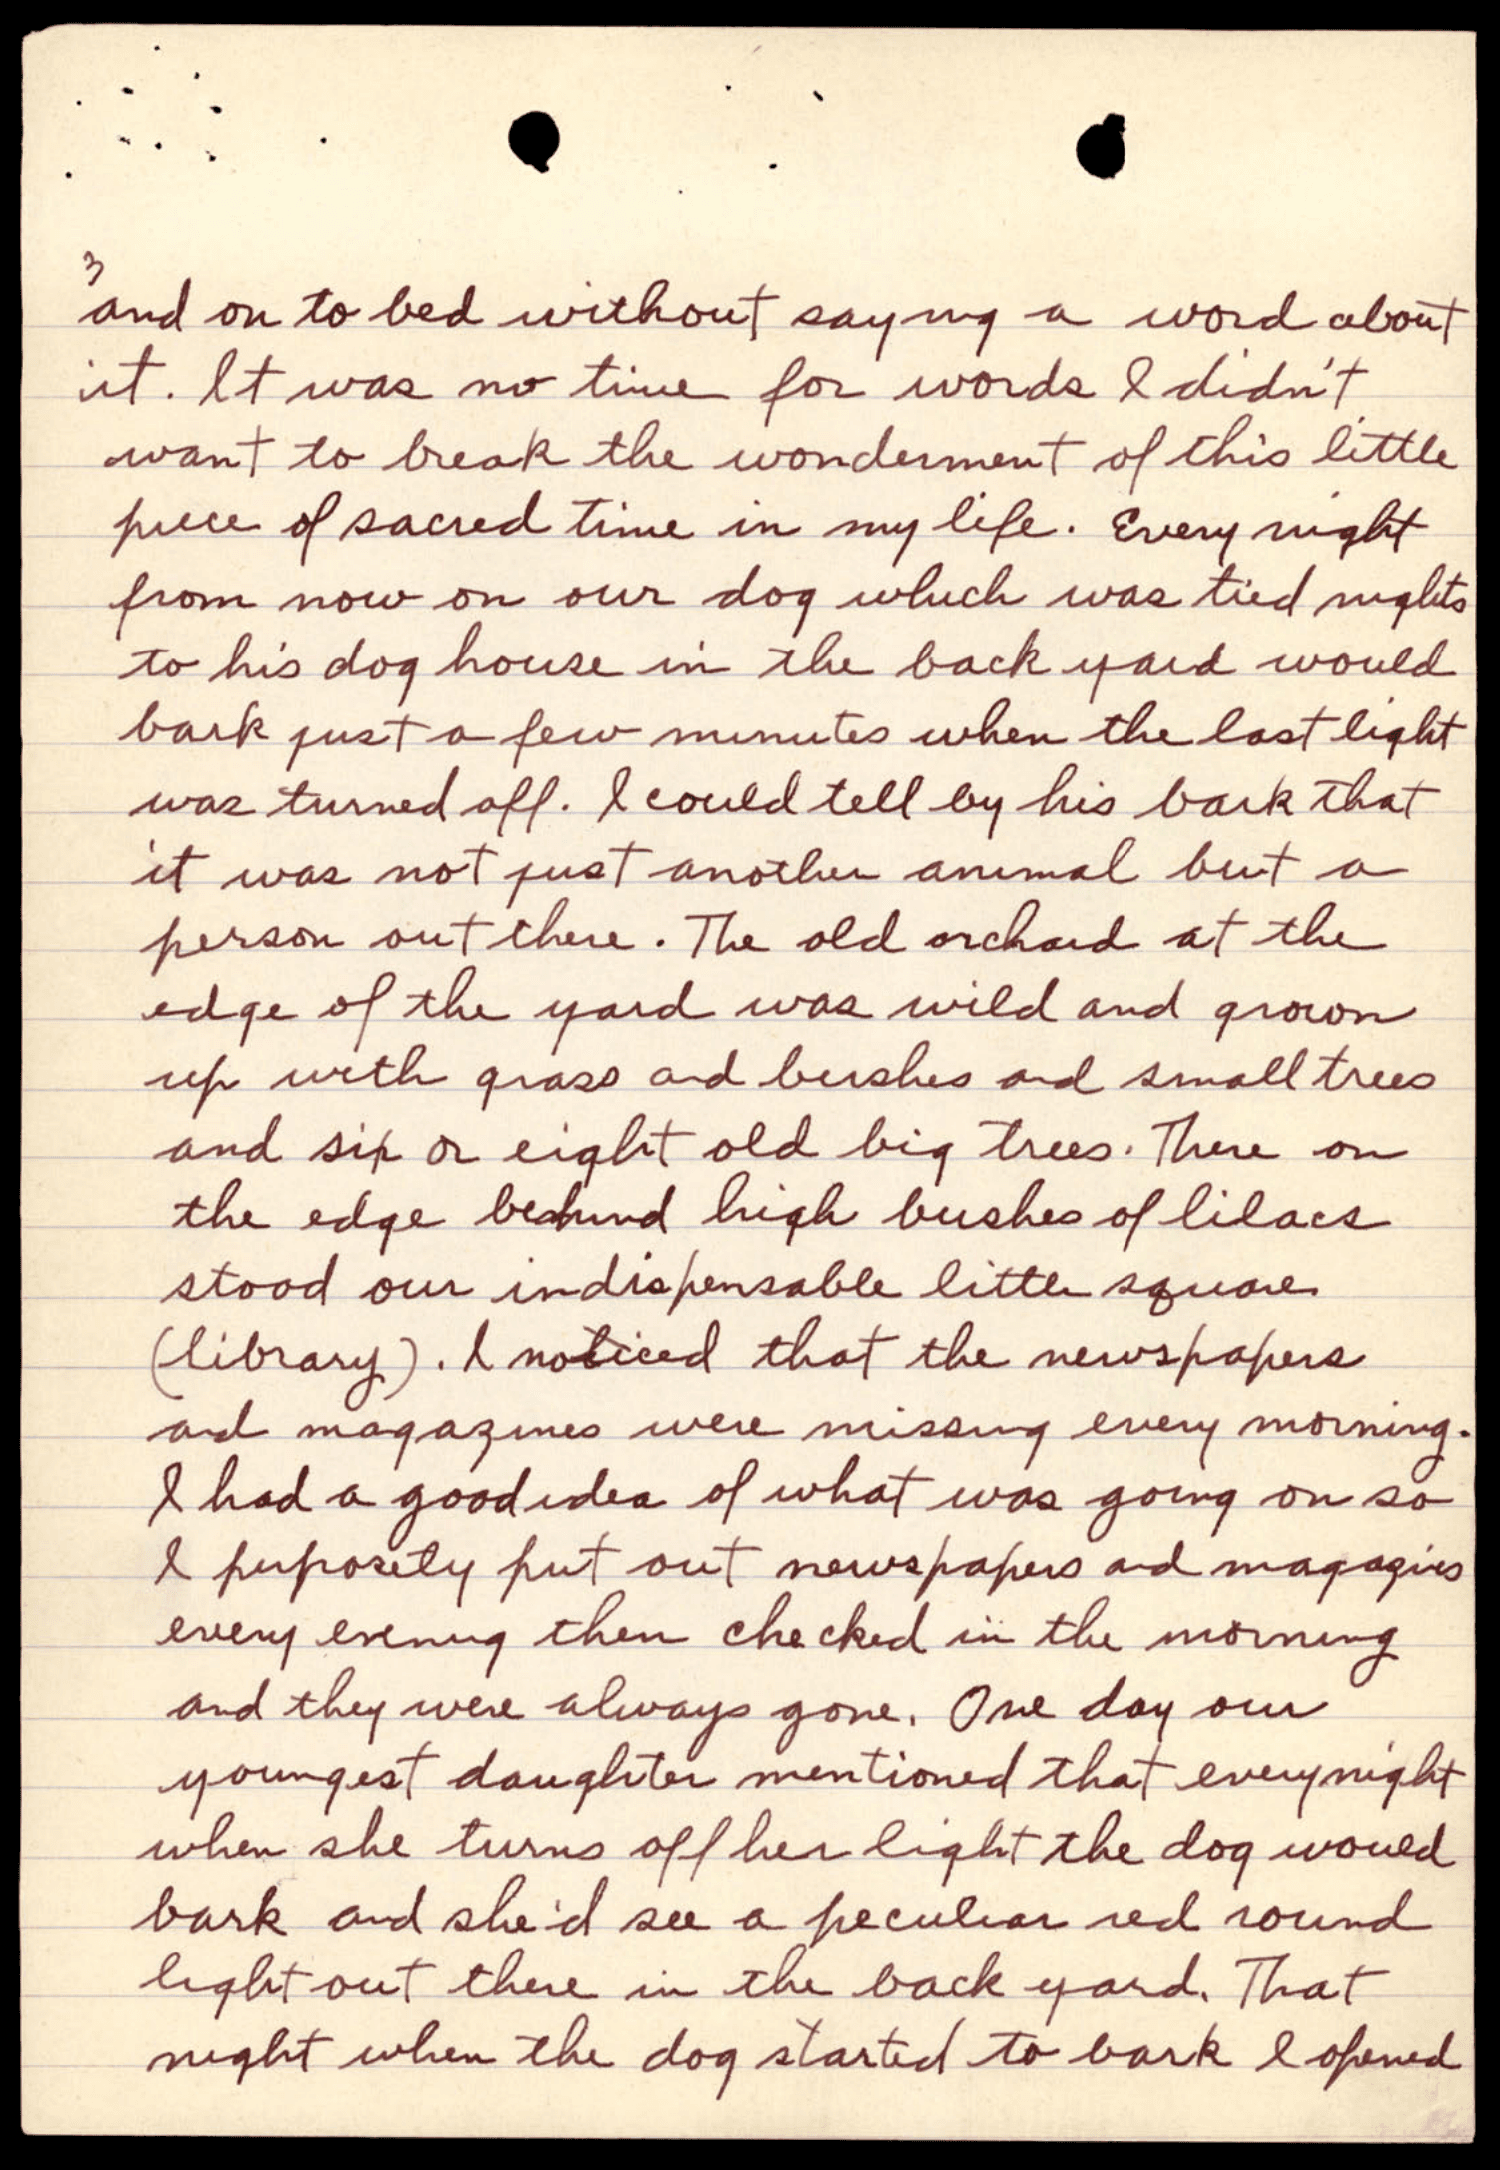 3
and on to bed without saying a word about
it. It was no time for words I didn't
want to break the wonderment of this little
piece of sacred time in my life. Every night
from now on our dog which was tied nights
to his dog house in the back yard would
bark just a few minutes when the last light
was turned off. I could tell by his bark that
it was not just another animal but a
person out there. The old orchard at the
edge of the yard was wild and grown
up with grass and bushes and small trees
and six or eight old big trees. There on
the edge behind high bushes of lilacs
stood our indispensable little square
(library). I noticed that the newspapers
and magazines were missing every morning.
I had a good idea of what was going on so
I purposely put out newspapers and magazines
every evening then checked in the morning
and they were always gone. One day our
youngest daughter mentioned that every night
when she turns off her light the dog would
bark and she'd see a peculiar red round
light out there in the back yard. That
night when the dog started to bark I opened